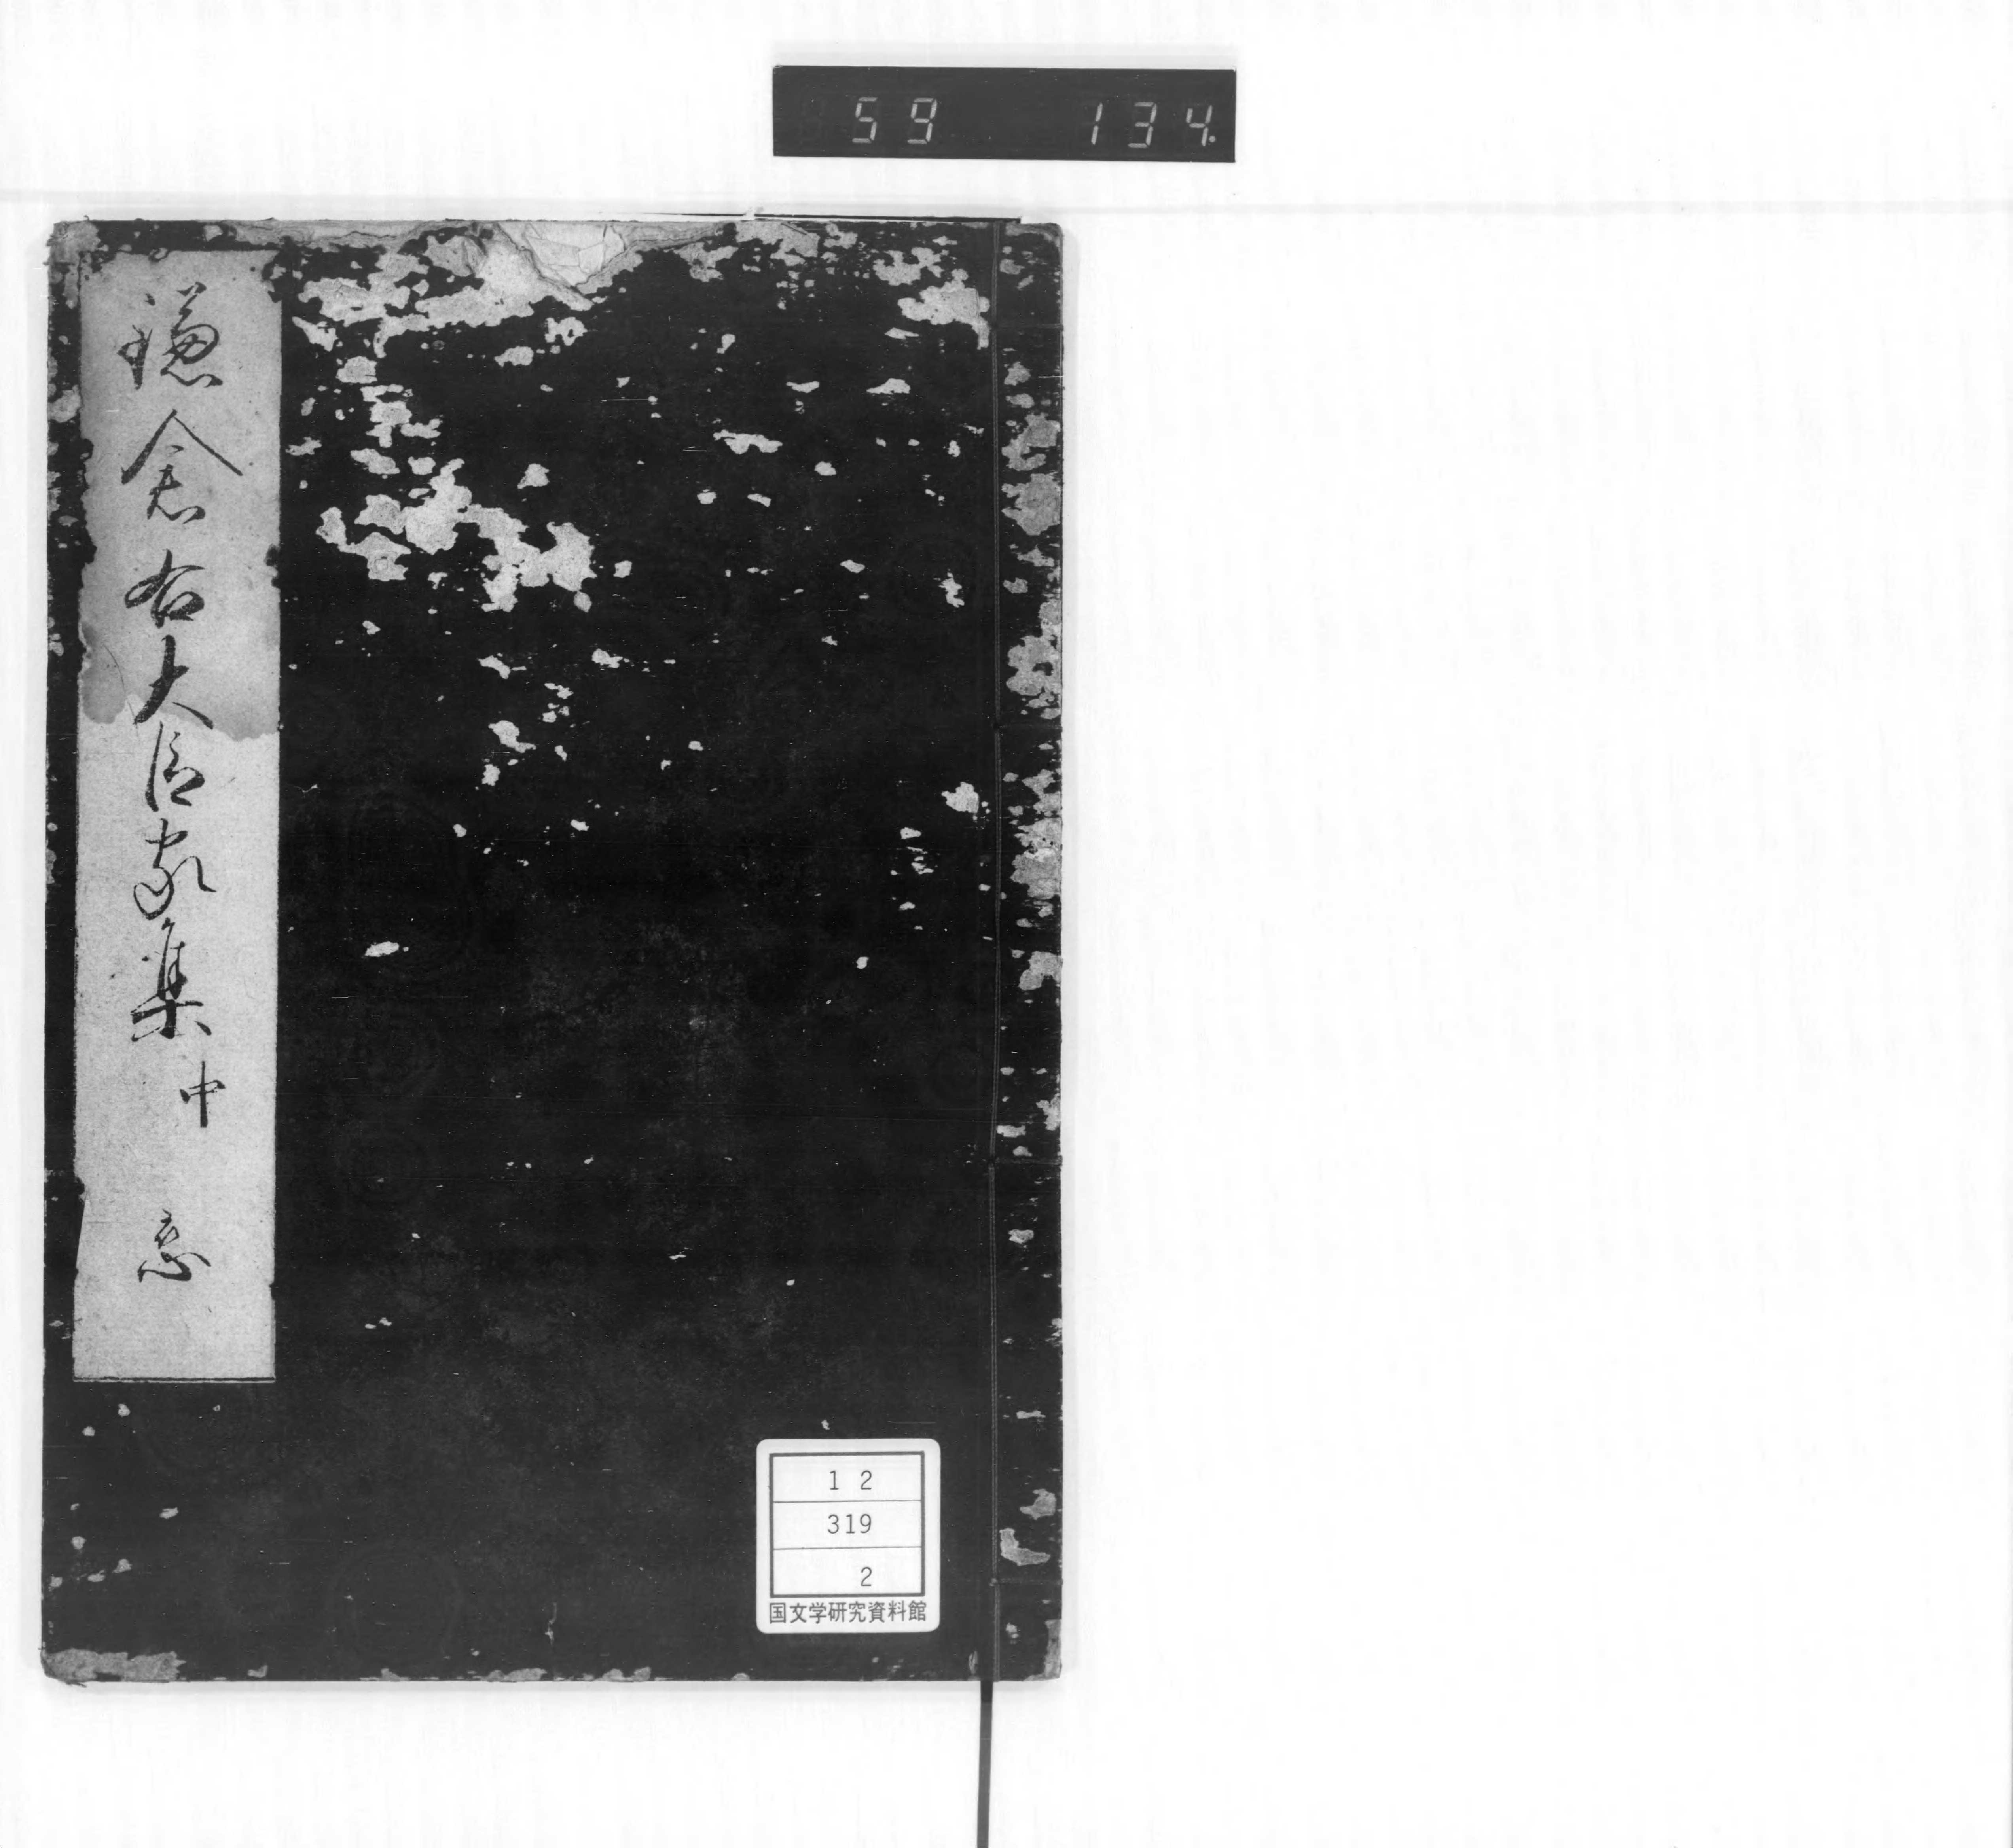 59 134.
鎌倉右大臣家集 中 恋
12
319
2
国文学研究資料館